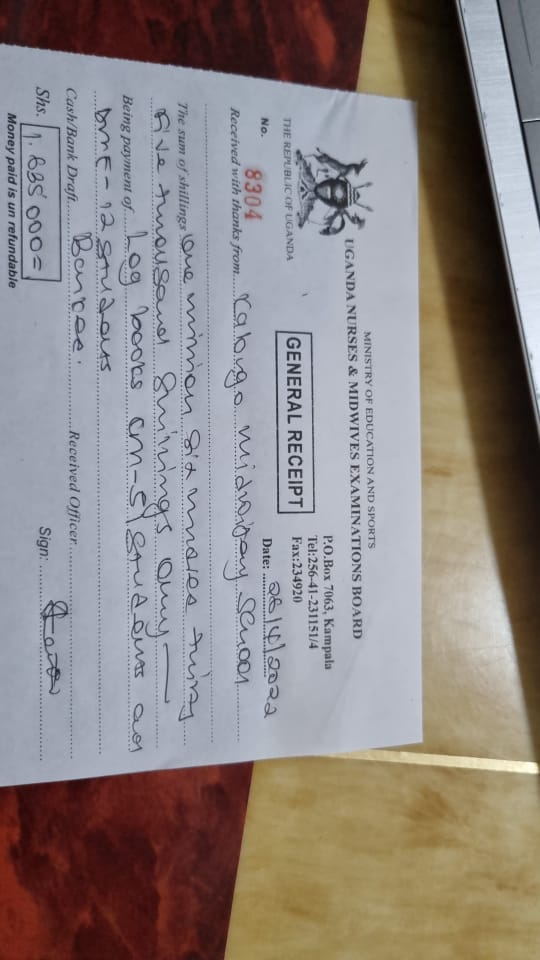 MINISTRY OF EDUCATION AND SPORTS
UGANDA NURSES & MIDWIVES EXAMINATIONS BOARD
THE REPUBLIC OF UGANDA
P.O.Box 7063, Kampala
Tel:256-41-231151/4
Fax:234920
GENERAL RECEIPT
No. 8304
Date: 26/4/2022
Received with thanks from Kabingo midwifery School
The sum of shillings One million six hundred thirty
five thousand shillings only
Being payment of Log books cm-51 students and
DME-12 students
Cash/Bank Draft Bankee. Received Officer
Shs. 1,635,000= Sign:
Money paid is un refundable